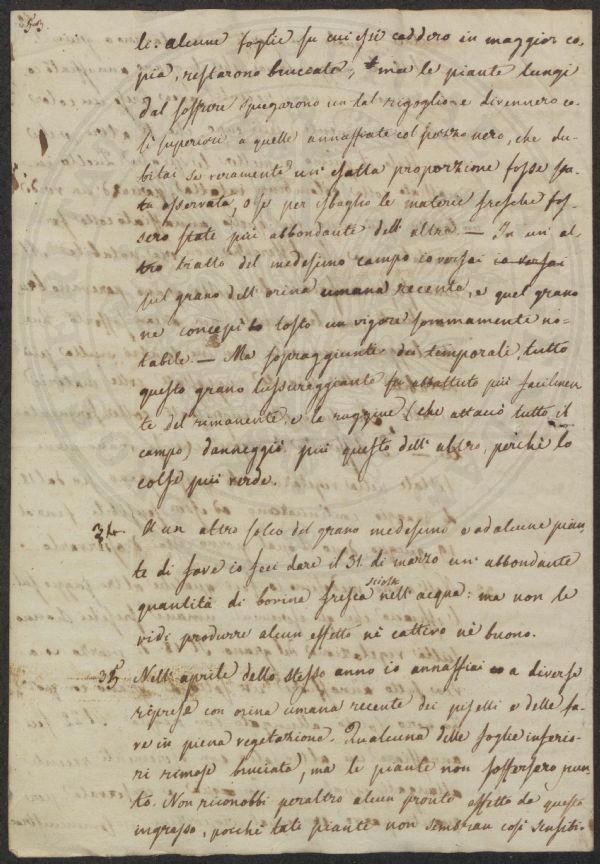 li: alcune foglie su cui essi caddero in maggior co-
pia, restarono bruciate; ma le piante lungi
dal soffrire spiegarono un tal rigoglio e divennero co-
sì superiori a quelle annaffiate col pozzo nero, che du-
bitai se veramente un' esatta proporzione fosse sta-
ta osservata, o se per isbaglio le materie fresche fos-
sero state più abbondante dell' altra. — In un al-
tro tratto del medesimo campo io versai io versai
sul grano dell' orina umana recente, e quel grano
ne concepì tosto un vigore sommamente no-
tabile. — Ma sopraggiunti dei temporali tutto
questo grano lussureggiante fu abbattuto più facilmen-
te del rimanente, e la ruggine (che attaccò tutto il
campo) danneggiò più questo dell' altro, perchè lo
colse più verde.
34. A un altro solco del grano medesimo e ad alcune pian-
te di fave io feci dare il 31. di marzo un' abbondante
quantità di bovina fresca sciolta nell' acqua: ma non le
vidi produrre alcun effetto nè cattivo nè buono.
35. Nell' aprile dello stesso anno io annaffiai a diverse
riprese con orina umana recente dei piselli e delle fa-
ve in piena vegetazione. Qualcuna delle foglie inferio-
ri rimase bruciata, ma le piante non soffersero pun-
to. Non riconobbi peraltro alcun pronto effetto da questo
ingrasso, poichè tali piante non sembran così sensiti-